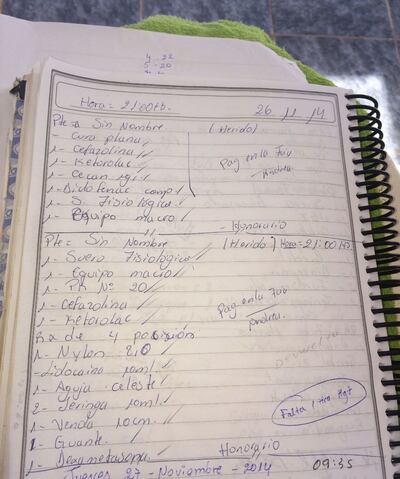 4 - 22
5 - 20
Hora = 21:00 Hb.
26 11 14
Pte = Sin Nombre (Herido)
Cura plana
1- Cefazolina
1- Ketorolac
1-
1- Diclofenac comp
1- S. Fisiológica
1- Equipo macro
Pag en la
Andrea
Honorario
Pte = Sin Nombre (Herido) Hora = 21:00 Hb
1- Suero Fisiológico
1- Equipo macro
1- Nº 20
1- Cefazolina
1- Ketorolac
Pag en la
Andrea.
de 4 posición
1- Nylon 2,0
-Lidocaina 10ml.
1- Aguja celeste
2- Jeringa 10ml.
1- Venda 10cm.
1- Guante
1- Dexametasona
Honorario
Falta 1
Jueves 27 - Noviembre - 2014 09:35